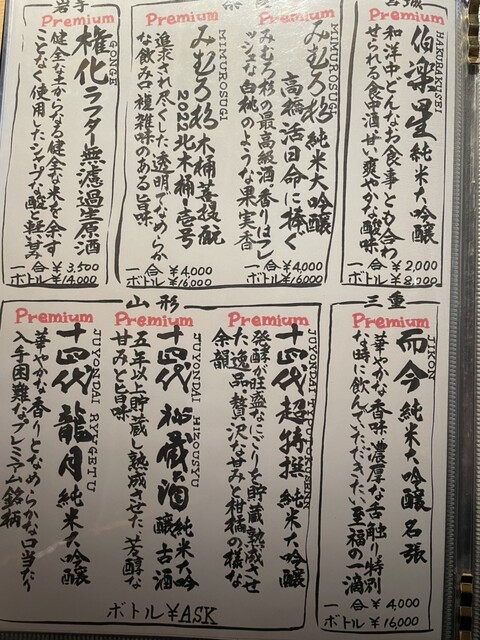 宮城
Premium
HAKURAKUSEI
伯楽星 純米大吟醸
和洋中どんなお食事とも合わ
せられる食中酒 甘い爽やかな酸味
一合 ¥2,000
ボトル ¥8,200
奈良
Premium
MIMUROSUGI
みむろ杉 純米大吟醸
高橋活日命に捧ぐ
みむろ杉の最高級酒・香りはフレ
ッシュな白桃のような果実香
一合 ¥4,000
ボトル ¥16,000
Premium
MIMUROSUGI
みむろ杉 木桶菩提酛
2022 北木桶・壱号
追求され尽くした透明でなめらか
な飲み口 複雑味のある旨味
¥4,000
¥16,000
岩手
Premium
GONGE
権化 ラフター無濾過生原酒
健全な土からなる健全な米を余す
ことなく使用したシャープな酸と軽い甘み
一合 ¥3,500
ボトル ¥14,000
三重
Premium
JIKON
而今 純米大吟醸 名張
華やかな香味 濃厚な舌触り 特別
な時に飲んでいただきたい至福の一滴
一合 ¥4,000
ボトル ¥16,000
山形
Premium
十四代 超特撰 純米大吟醸
発酵が旺盛なにごりを貯蔵熟成させ
た逸品・贅沢な甘みと柑橘の様な
余韻
Premium
JUYONDAI HIZOUSYU
十四代 秘蔵酒 純米大吟
醸古酒
五年以上貯蔵し熟成させた 芳醇な
甘みと旨味
Premium
JUYONDAI RYUGETU
十四代 龍月 純米大吟醸
華やかな香りとなめらかな口当たり
入手困難なプレミアム銘柄
ボトル ¥ASK